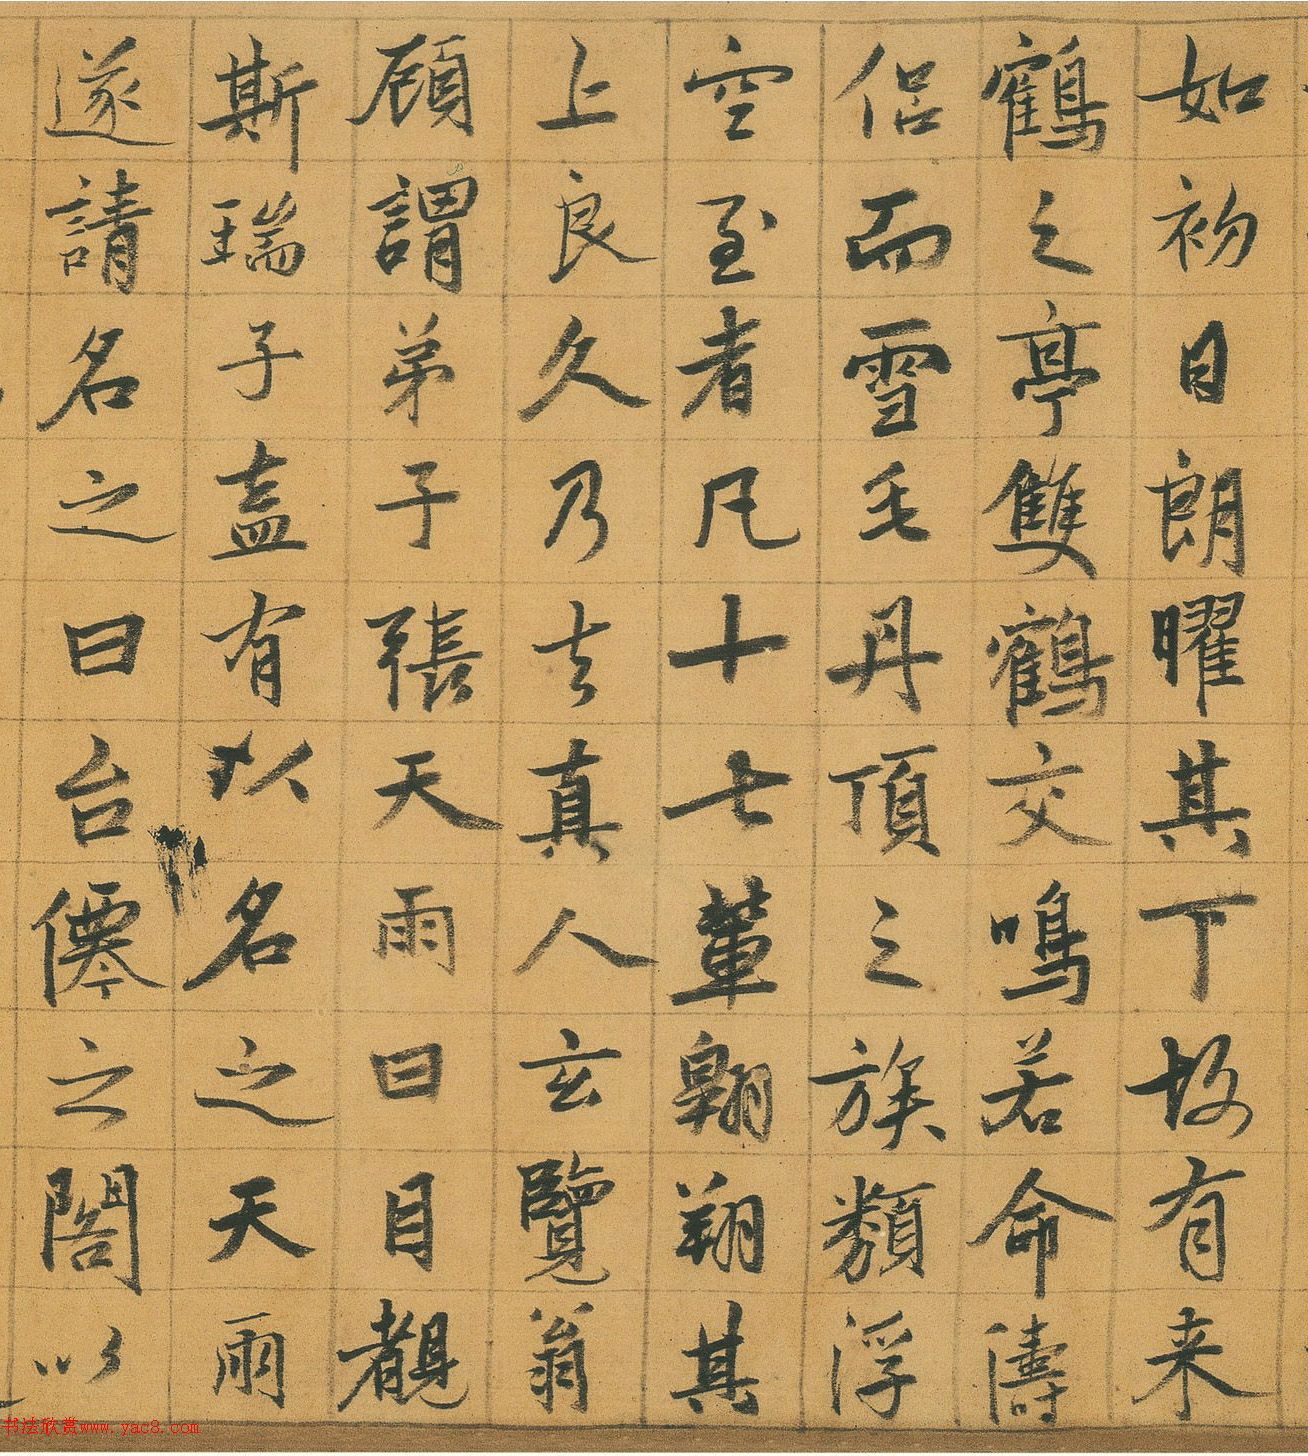 如初日朗曜其下故有来
鶴之亭雙鶴交鳴若命儔
侣而雪毛丹頂之族類浮
空至者凡十七輩翱翔其
上良久乃去真人玄覽翁
顧謂弟子張天雨曰目覩
斯瑞子盍有以名之天雨
遂請名之曰台僊之閣以
书法欣赏www.yac8.com